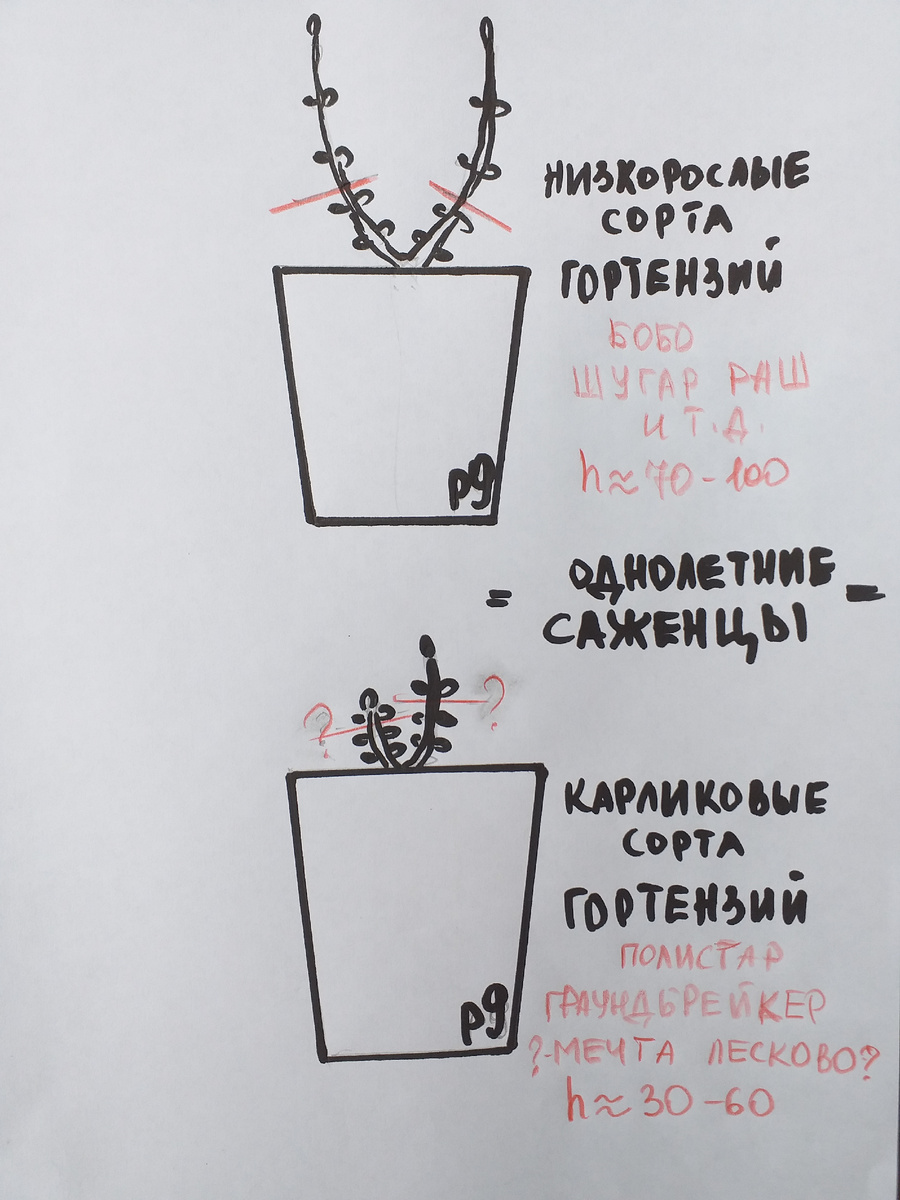 НИЗКОРОСЛЫЕ
СОРТА
ГОРТЕНЗИЙ
БОБО
ШУГАР РАШ
И Т.Д.
h≈70-100
p9
= ОДНОЛЕТНИЕ -
САЖЕНЦЫ
? ?
КАРЛИКОВЫЕ
СОРТА
ГОРТЕНЗИЙ
ПОЛИСТАР
ГРАУНДБРЕЙКЕР
?-МЕЧТА ЛЕСКОВО?
h≈30-60
p9